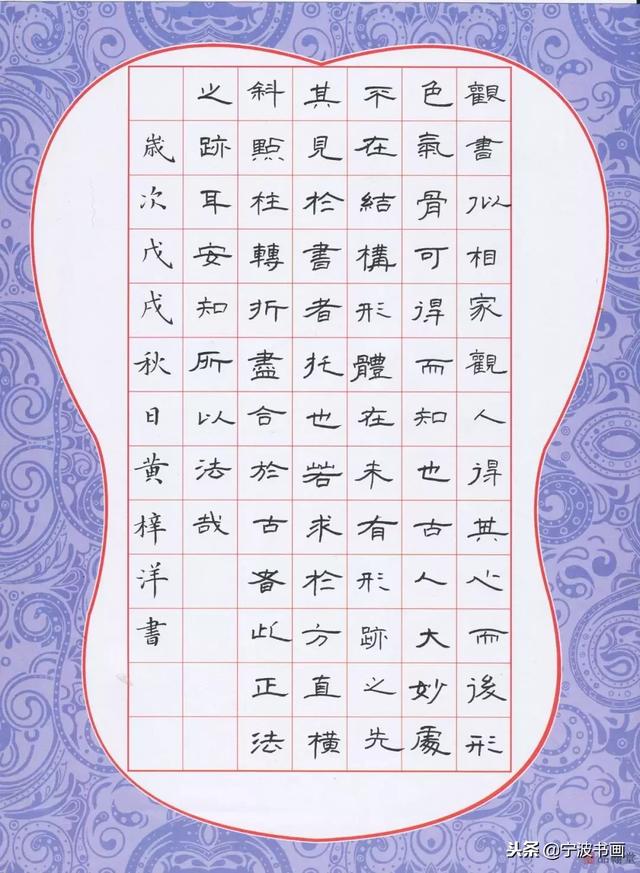 觀書似相家觀人得其心而後形
色氣骨可得而知也古人大妙處
不在結構形體在未有形跡之先
其見於書者托也若求於方直橫
斜點柱轉折盡合於古者此正法
之跡耳安知所以法哉
歲次戊戌秋日黄梓洋書
头条@宁波书画